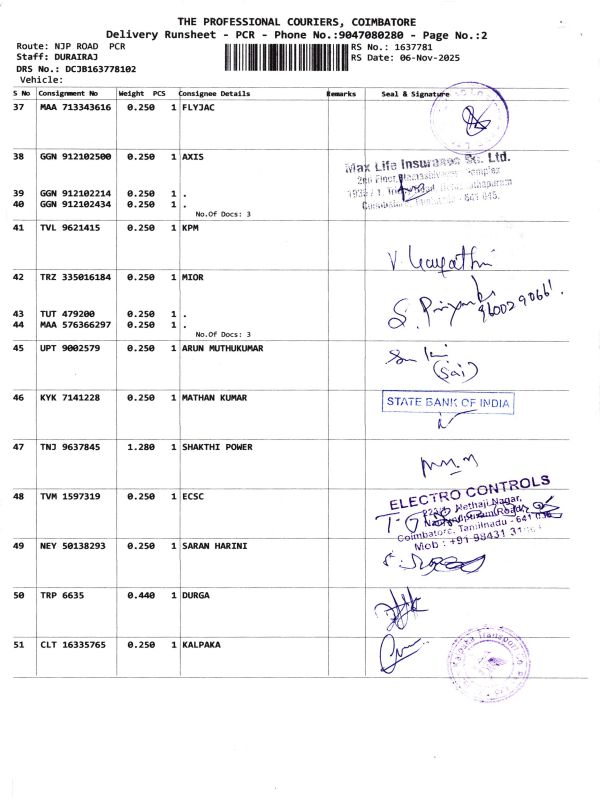 THE PROFESSIONAL COURIERS, COIMBATORE
Delivery Runsheet - PCR - Phone No.:9047080280 - Page No.:2
Route: NJP ROAD PCR
RS No.: 1637781
Staff: DURAIRAJ
RS Date: 06-Nov-2025
DRS No.: DCJB163778102
Vehicle:
S No Consignment No Weight PCS Consignee Details Remarks Seal & Signature
37 MAA 713343616 0.250 1 FLYJAC
38 GGN 912102500 0.250 1 AXIS
Max Life Insurance Co. Ltd.
39 GGN 912102214 0.250 1 .
40 GGN 912102434 0.250 1 .
No.Of Docs: 3
41 TVL 9621415 0.250 1 KPM
V. Gayathri
42 TRZ 335016184 0.250 1 MIOR
S. Priyanka
43 TUT 479200 0.250 1 .
44 MAA 576366297 0.250 1 .
No.Of Docs: 3
45 UPT 9002579 0.250 1 ARUN MUTHUKUMAR
(Sai)
46 KYK 7141228 0.250 1 MATHAN KUMAR
STATE BANK OF INDIA
47 TNJ 9637845 1.280 1 SHAKTHI POWER
48 TVM 1597319 0.250 1 ECSC
ELECTRO CONTROLS
Nethaji Nagar,
Coimbatore, Tamilnadu - 641 036
Mob : +91 98431
49 NEY 50138293 0.250 1 SARAN HARINI
50 TRP 6635 0.440 1 DURGA
51 CLT 16335765 0.250 1 KALPAKA
Kalpaka Transport Co